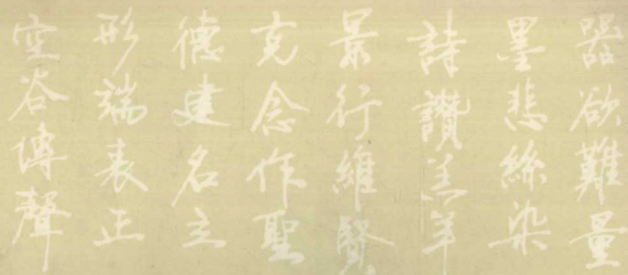 器欲難量
墨悲絲染
詩讚羔羊
景行維賢
克念作聖
德建名立
形端表正
空谷傳聲